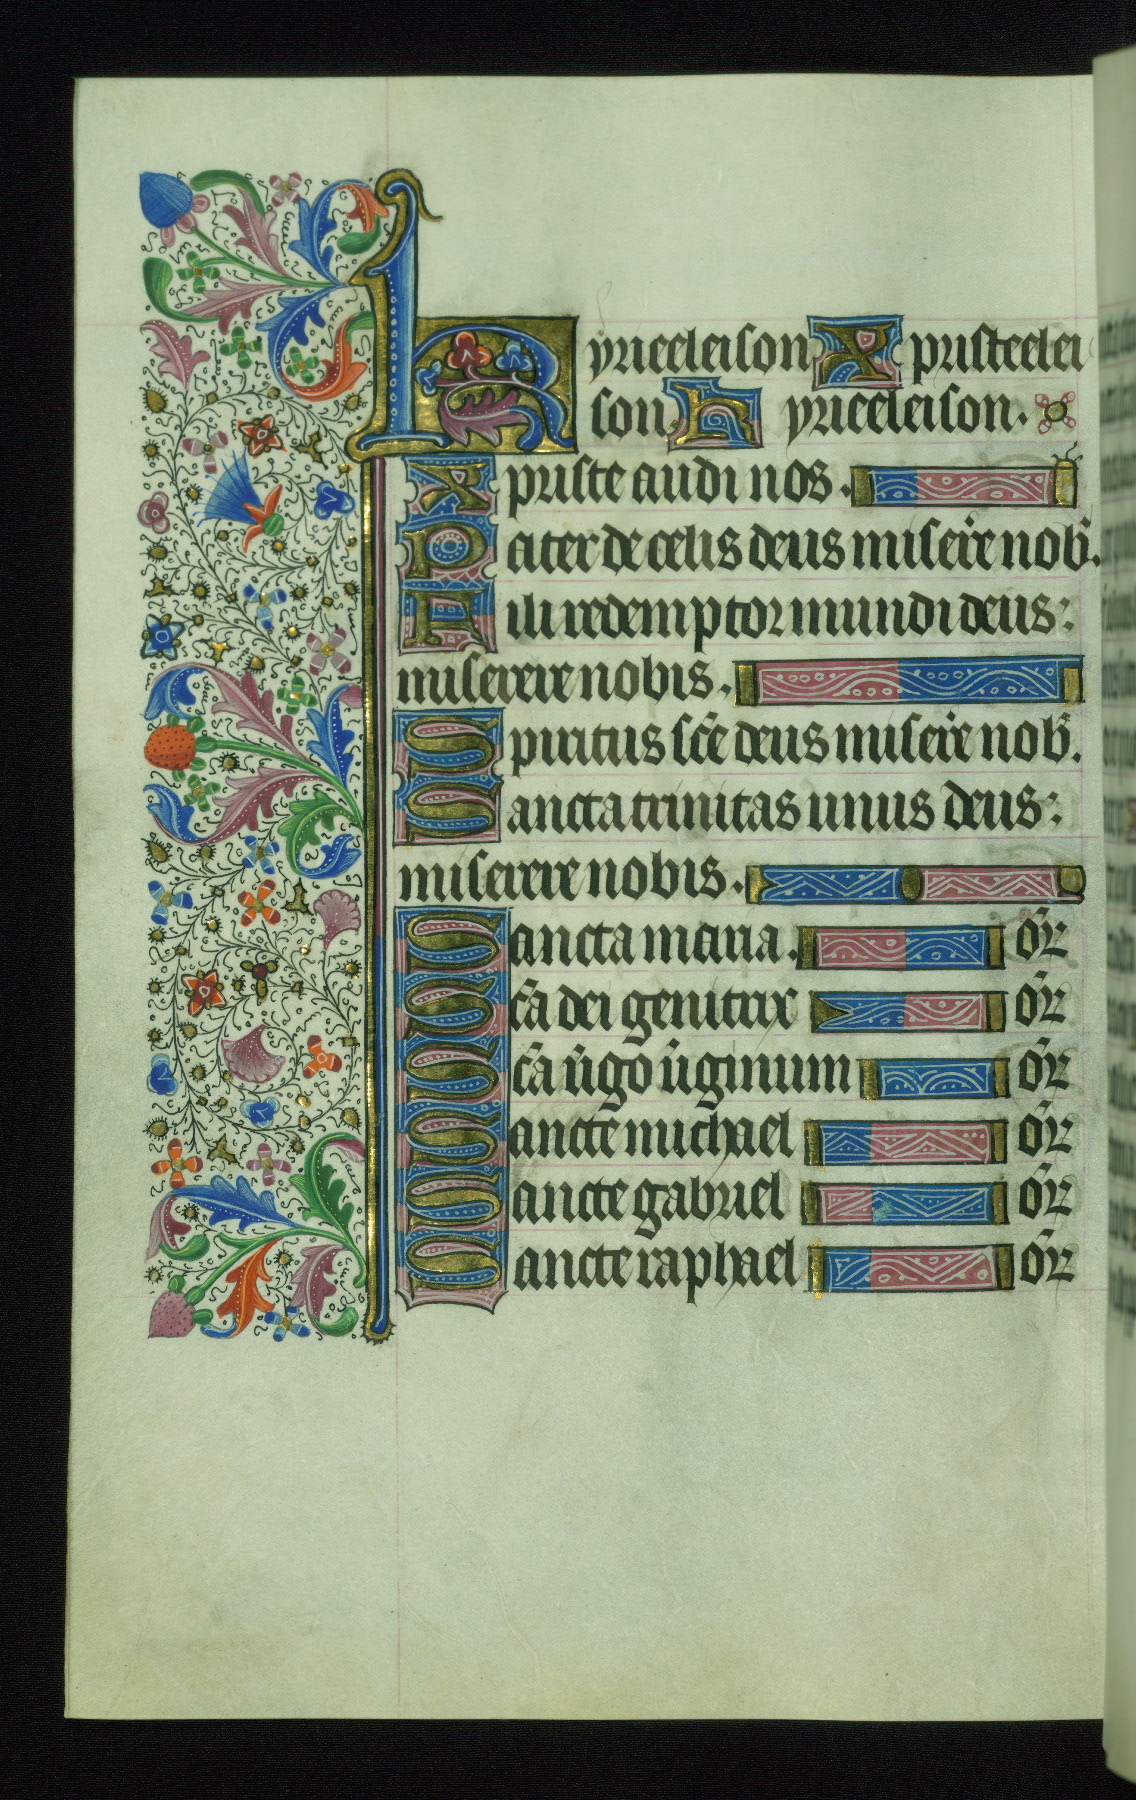 Kyrieeleison Xpristeelei
son. Kyrieeleison.
Xpriste audi nos.
Pater de celis deus miserē nob̄.
Fili redemptor mundi deus:
miserere nobis.
Spiritus sc̄e deus miserē nob̄.
Sancta trinitas unus deus:
miserere nobis.
Sancta maria. or̄
Sc̄a dei genitrix or̄
Sc̄a ūgo ūginum or̄
Sancte michael or̄
Sancte gabriel or̄
Sancte raphael or̄